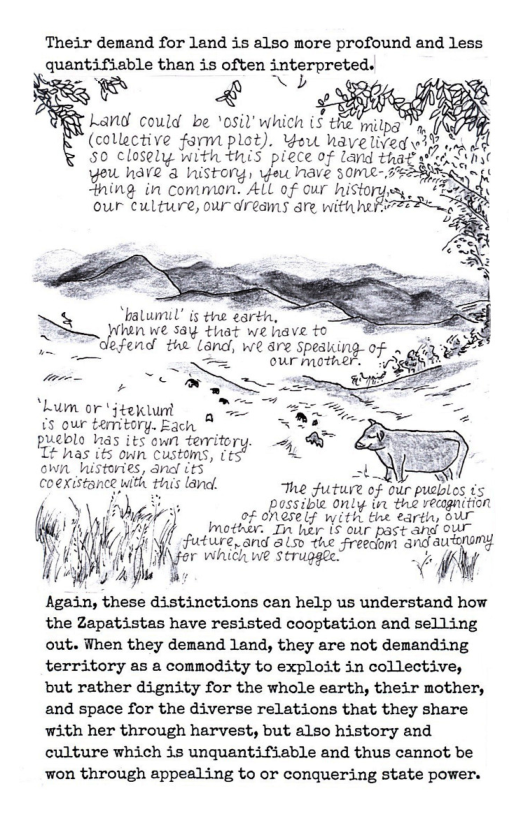 Their demand for land is also more profound and less
quantifiable than is often interpreted.
Land could be 'osil' which is the milpa
(collective farm plot). You have lived
so closely with this piece of land that
you have a history, you have some-
thing in common. All of our history,
our culture, our dreams are with her.
'balumil' is the earth.
When we say that we have to
defend the land, we are speaking of
our mother.
'Lum or 'jteklum'
is our territory. Each
pueblo has its own territory.
It has its own customs, its
own histories, and its
coexistance with this land.
The future of our pueblos is
possible only in the recognition
of oneself with the earth, our
mother. In her is our past and our
future, and also the freedom and autonomy
for which we struggle.
Again, these distinctions can help us understand how
the Zapatistas have resisted cooptation and selling
out. When they demand land, they are not demanding
territory as a commodity to exploit in collective,
but rather dignity for the whole earth, their mother,
and space for the diverse relations that they share
with her through harvest, but also history and
culture which is unquantifiable and thus cannot be
won through appealing to or conquering state power.